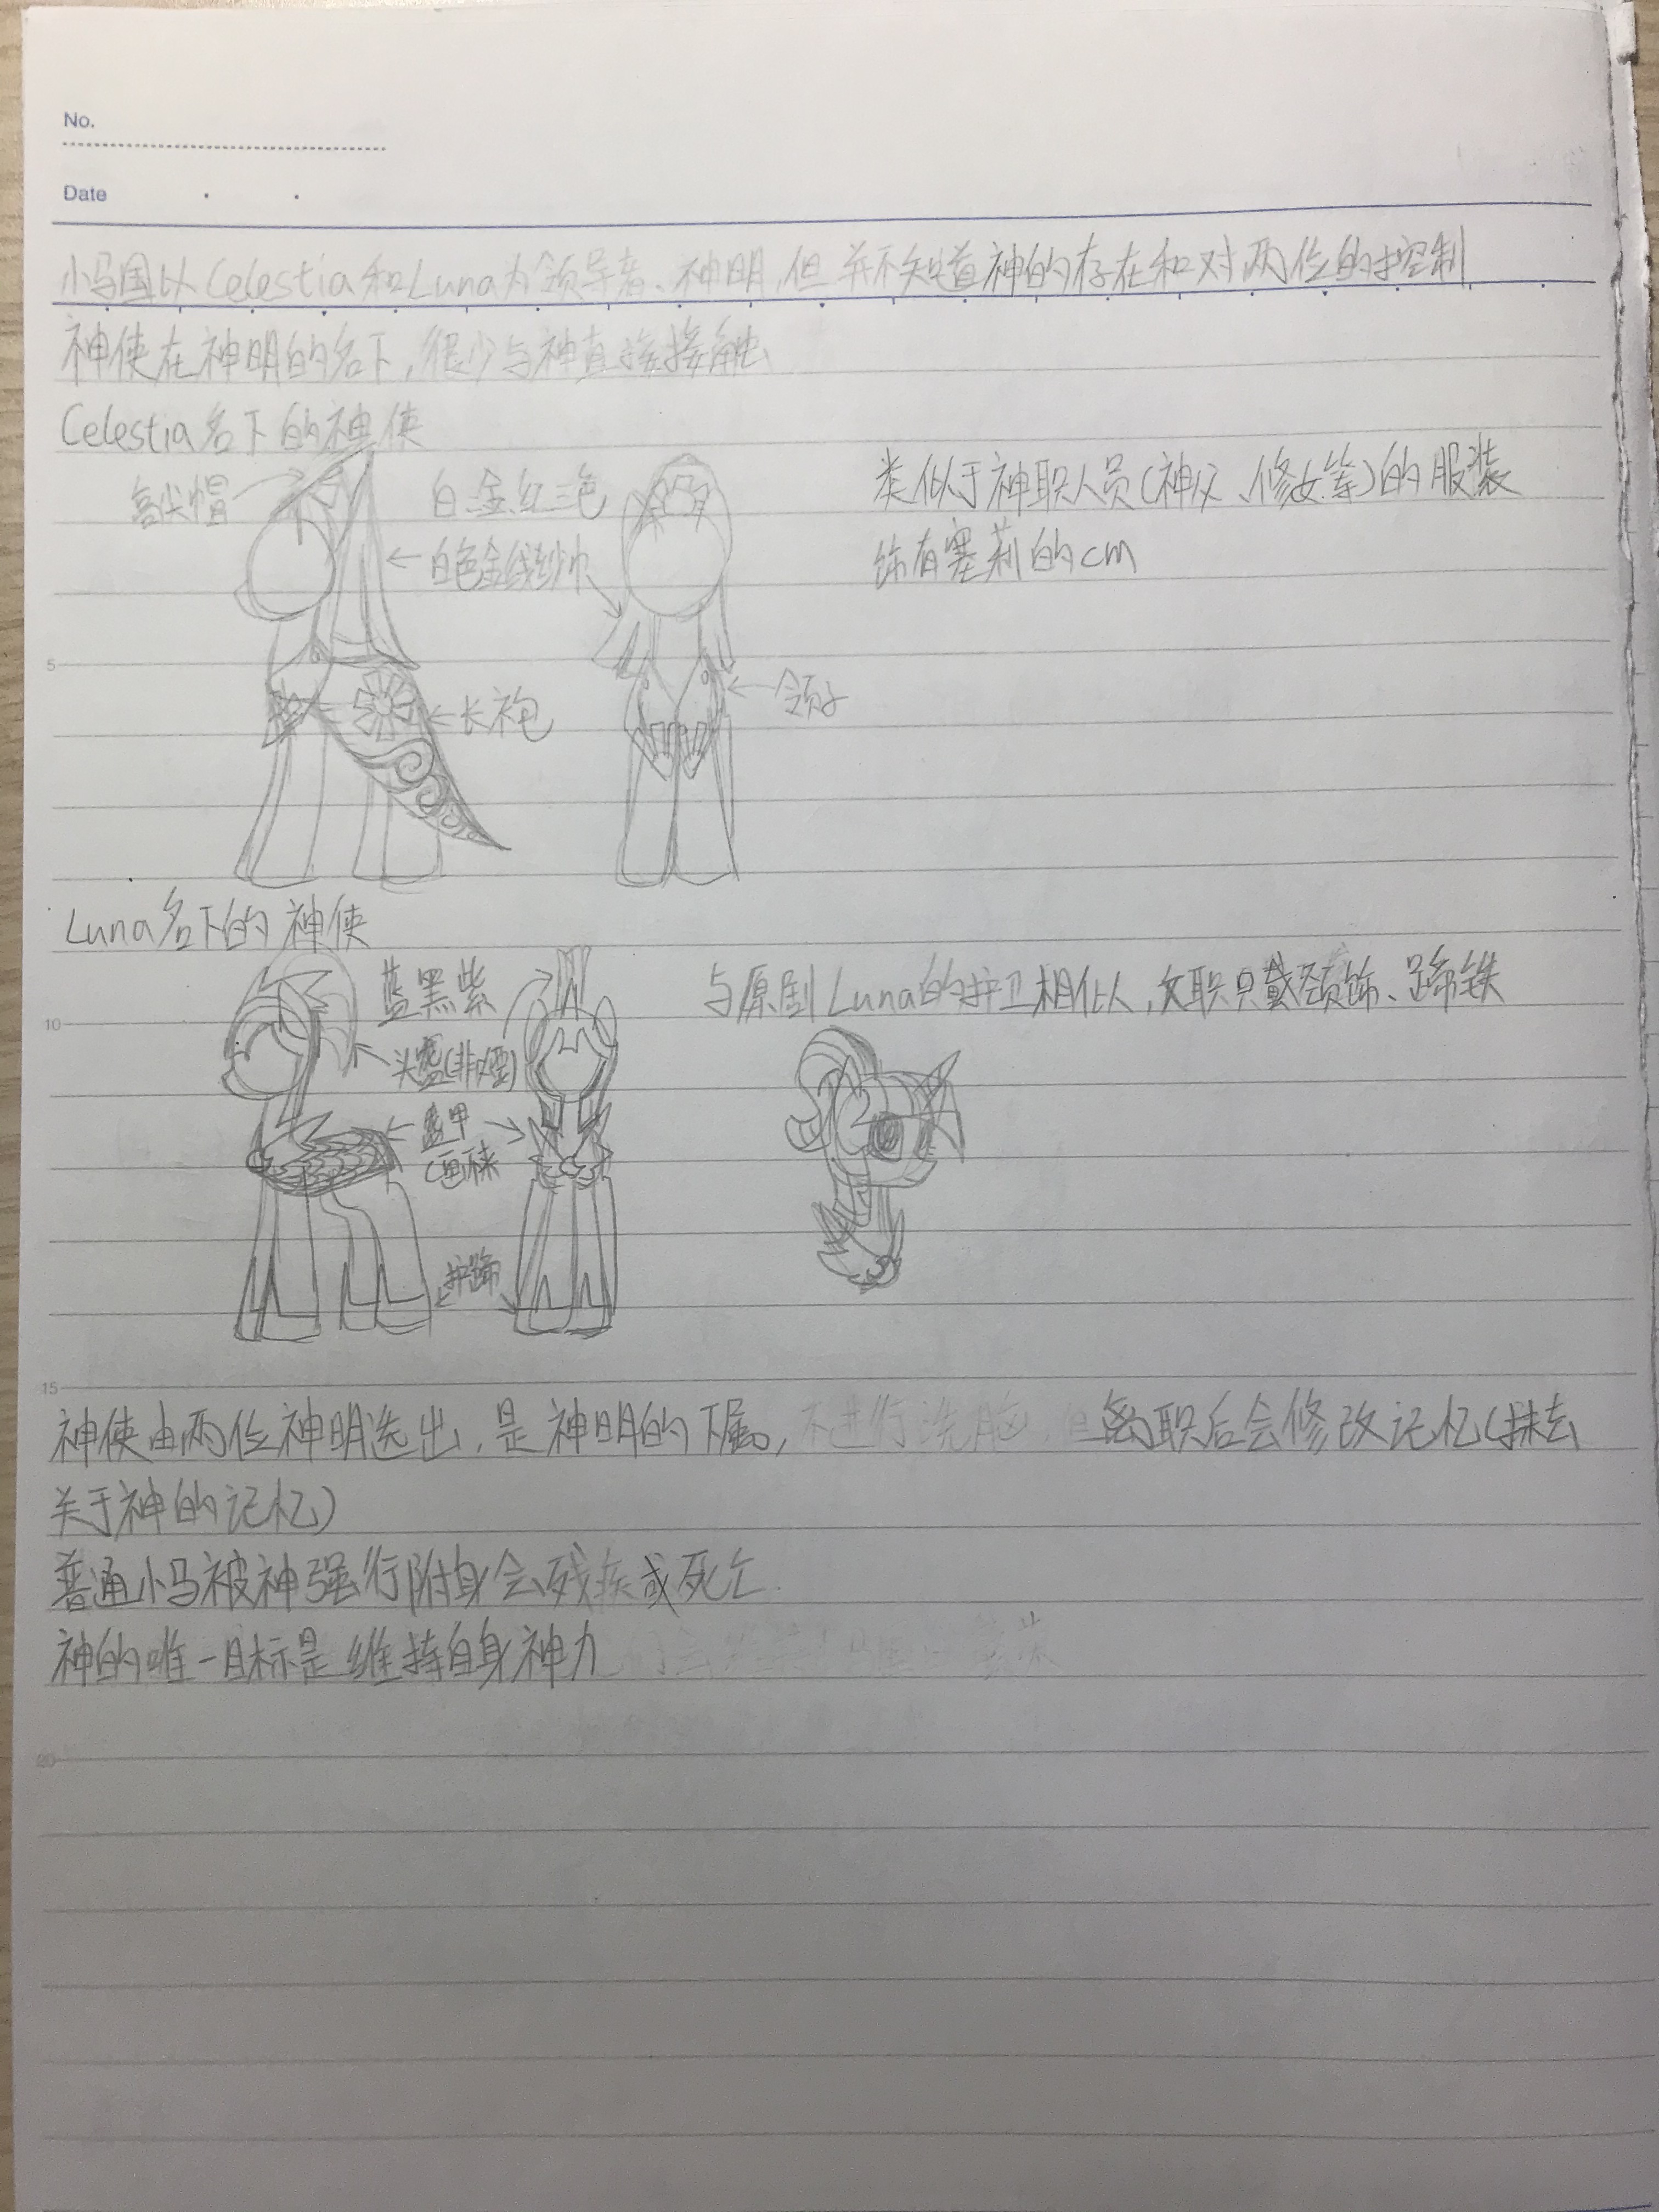 No.
Date
小马国以Celestia和Luna为领导者、神明,但并不知道神的存在和对两位的控制
神使在神明的名下,很少与神直接接触
Celestia名下的神使
高尖帽
白金红三色
类似于神职人员(神父、修女等)的服装
白色金线纱巾
饰有塞莉的cm
5
领子
长袍
Luna名下的神使
蓝黑紫
与原剧Luna的护卫相似,文职只戴颈饰、蹄铁
10
头盔(非烟)
盔甲
护蹄
15
神使由两位神明选出,是神明的下属,不进行洗脑,但离职后会修改记忆(抹去
关于神的记忆)
普通小马被神强行附身会残疾或死亡.
神的唯一目标是维持自身神力
20